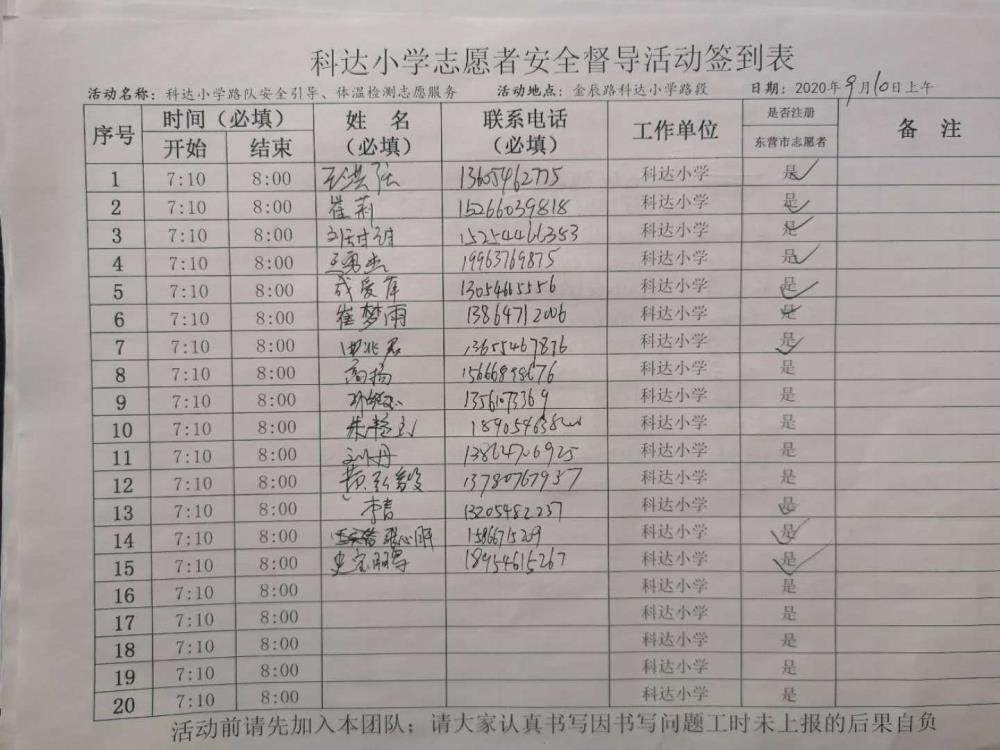 科达小学志愿者安全督导活动签到表
活动名称：科达小学路队安全引导、体温检测志愿服务 活动地点：金辰路科达小学路段 日期：2020年9月10日上午
序号 时间（必填） 姓 名（必填） 联系电话（必填） 工作单位 是否注册 备 注
开始 结束 东营市志愿者
1 7:10 8:00 13605462775 科达小学 是
2 7:10 8:00 崔莉 15266039818 科达小学 是
3 7:10 8:00 15254466383 科达小学 是
4 7:10 8:00 王勇杰 19963769875 科达小学 是
5 7:10 8:00 成爱萍 13054665556 科达小学 是
6 7:10 8:00 崔梦雨 13864712006 科达小学 是
7 7:10 8:00 田兆君 13655467876 科达小学 是
8 7:10 8:00 高扬 科达小学 是
9 7:10 8:00 科达小学 是
10 7:10 8:00 科达小学 是
11 7:10 8:00 刘丹 13864706925 科达小学 是
12 7:10 8:00 黄弘毅 13780767937 科达小学 是
13 7:10 8:00 李青 13205482237 科达小学 是
14 7:10 8:00 科达小学 是
15 7:10 8:00 史宝鹏 18954615267 科达小学 是
16 7:10 8:00 科达小学 是
17 7:10 8:00 科达小学 是
18 7:10 8:00 科达小学 是
19 7:10 8:00 科达小学 是
20 7:10 8:00 科达小学 是
活动前请先加入本团队；请大家认真书写因书写问题工时未上报的后果自负